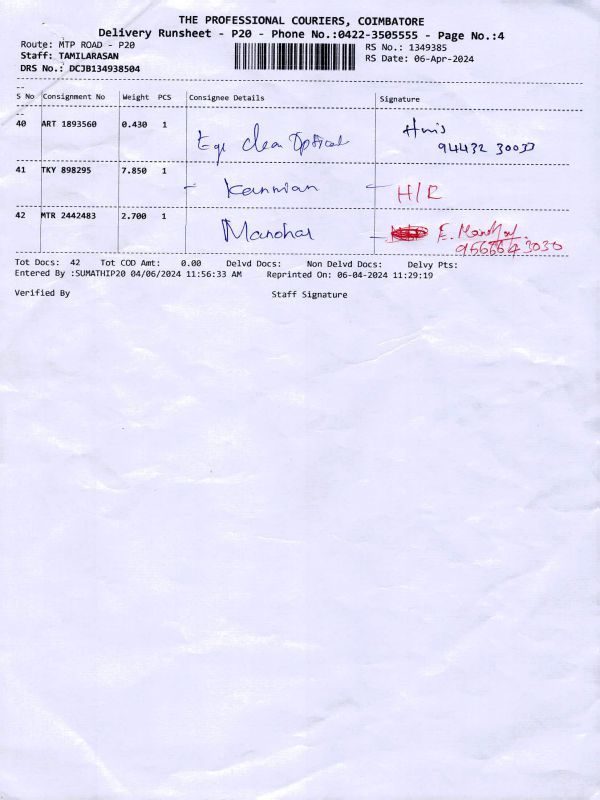 THE PROFESSIONAL COURIERS, COIMBATORE
Delivery Runsheet - P20 - Phone No.:0422-3505555 - Page No.:4
Route: MTP ROAD - P20 RS No.: 1349385
Staff: TAMILARASAN RS Date: 06-Apr-2024
DRS No.: DCJB134938504
S No Consignment No Weight PCS Consignee Details Signature
40 ART 1893560 0.430 1 Clear Optical
94432 30033
41 TKY 898295 7.850 1 Kannian H/R
42 MTR 2442483 2.700 1 Manohar E. Manohar
9666643030
Tot Docs: 42 Tot COD Amt: 0.00 Delvd Docs: Non Delvd Docs: Delvy Pts:
Entered By :SUMATHIP20 04/06/2024 11:56:33 AM Reprinted On: 06-04-2024 11:29:19
Verified By Staff Signature